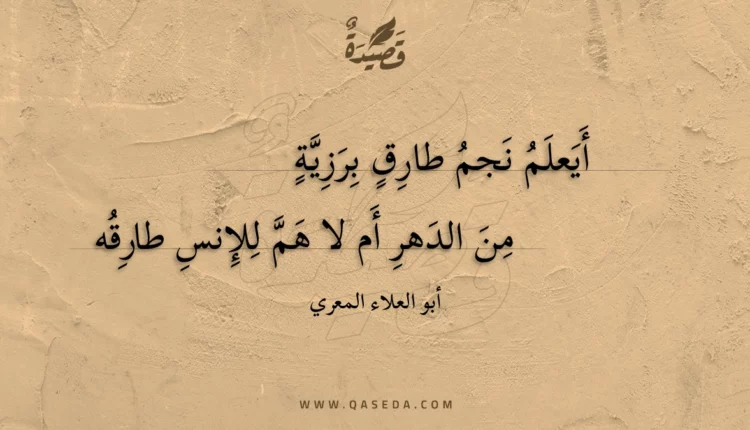 قَصِيدَةٌ
أَيَعلَمُ نَجمُ طارِقٍ بِرَزِيَّةٍ
مِنَ الدَهرِ أَم لا هَمَّ لِلإِنسِ طارِقُه
أبو العلاء المعري
WWW.QASEDA.COM